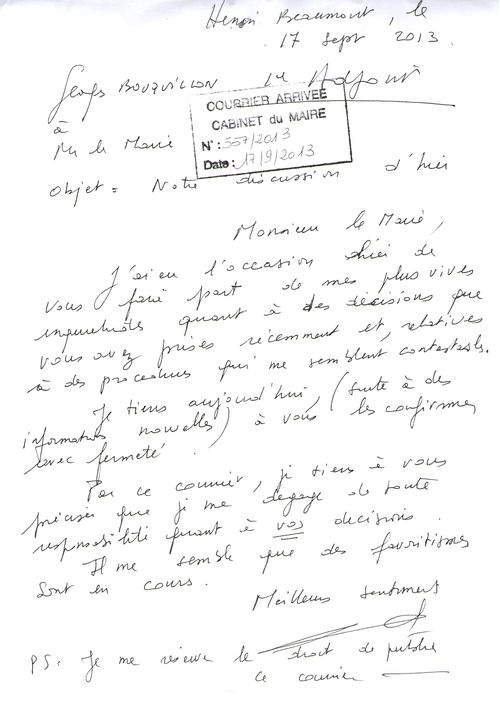 Henri Beaumont, le
17 Sept 2013.
Georges BOUQUILLON 1er Adjoint
à
Mr le Maire
COURRIER ARRIVÉE
CABINET du MAIRE
N° : 557/2013
Date : 17/9/2013
Objet = Notre discussion d'hier
Monsieur le Maire,
J'ai eu l'occasion hier de
vous faire part de mes plus vives
inquiétudes quant à des décisions que
vous avez prises récemment et, relatives
à des procédures qui me semblent contestables.
Je tiens aujourd'hui, (suite à des
informations nouvelles) à vous les confirmer
avec fermeté.
Par ce courrier, je tiens à vous
préciser que je me dégage de toute
responsabilité quant à vos décisions.
Il me semble que des favoritismes
sont en cours.
Meilleurs sentiments
PS : Je me réserve le droit de publier
ce courrier